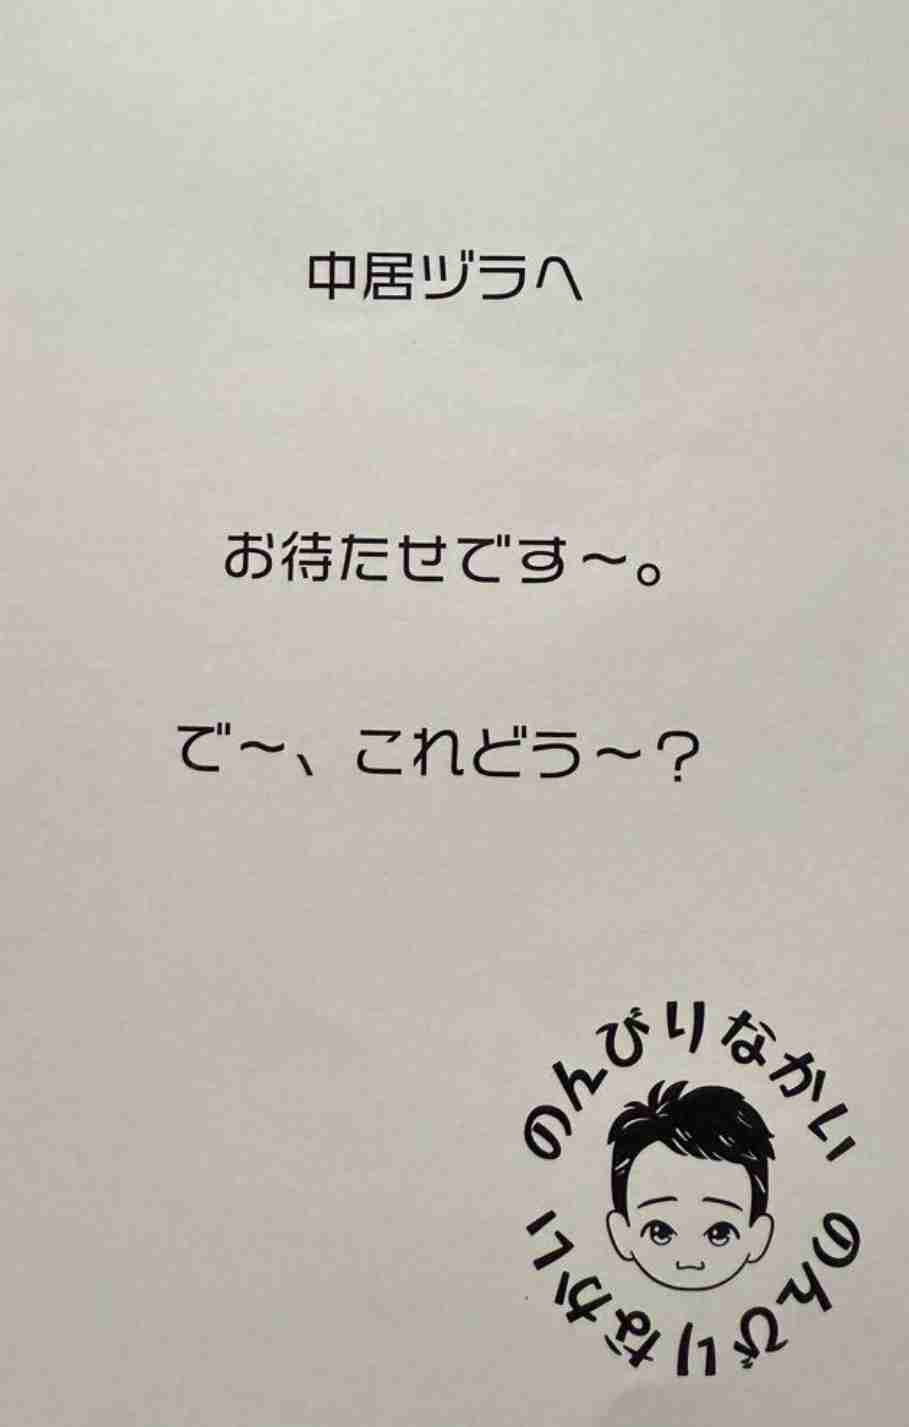 中居ヅラへ
お待たせです～。
で～、これどう～？
のんびりなかい
のんびりなかい